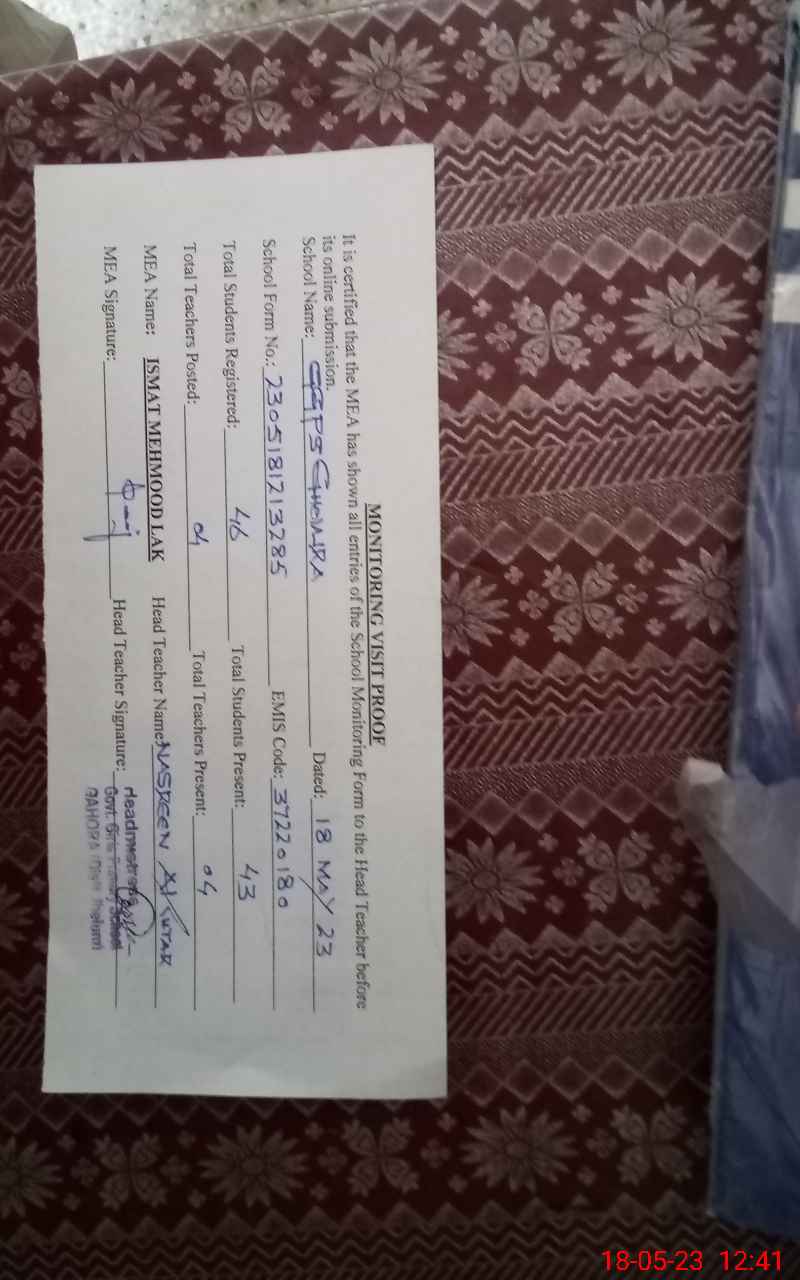 MONITORING VISIT PROOF
It is certified that the MEA has shown all entries of the School Monitoring Form to the Head Teacher before
its online submission.
School Name: GGPS Dated: 18 MAY 23
School Form No.: 2305181213285 EMIS Code: 37220180
Total Students Registered: 46 Total Students Present: 43
Total Teachers Posted: 04 Total Teachers Present: 04
MEA Name: ISMAT MEHMOOD LAK Head Teacher Name: NASREEN AKHTAR
MEA Signature: Head Teacher Signature:
Headmistress
Govt. Girls Primary School
18-05-23 12:41